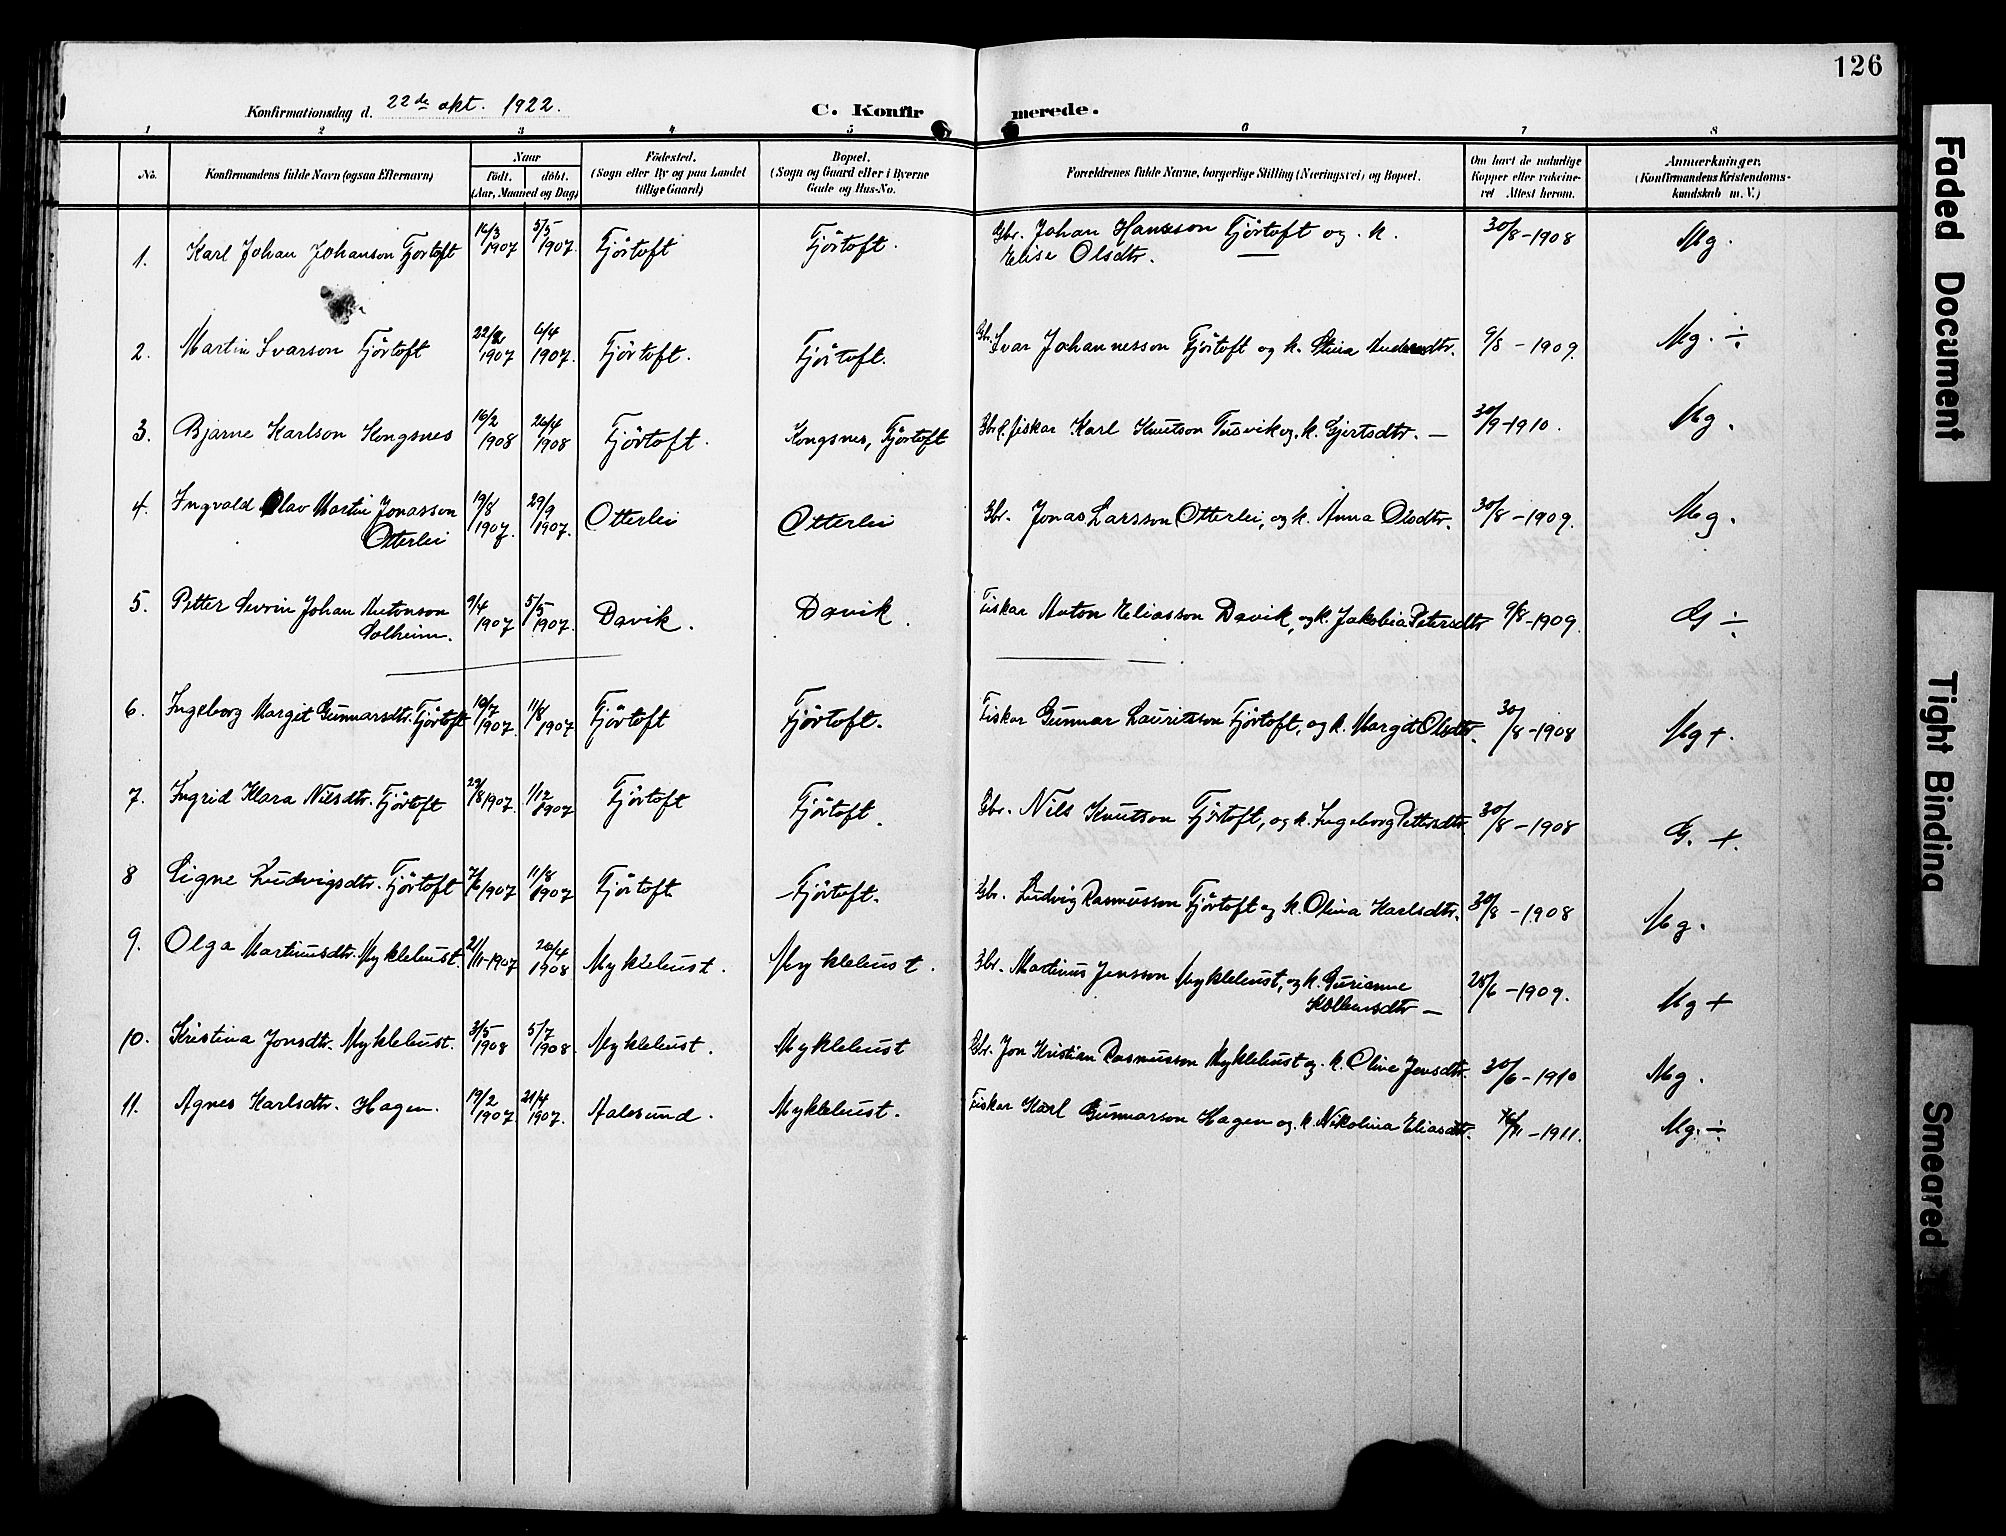 126
Konfirmationsdag d. 22de okt. 1922.
C. Konfirmerede.
1 2 3 4 5 6 7 8
No.
Konfirmandens fulde Navn (ogsaa Efternavn)
Naar
födt. döbt.
(Aar, Maaned og Dag)
Födested.
(Sogn eller By og paa Landet
tillige Gaard)
Bopæl.
(Sogn og Gaard eller i Byerne
Gade og Hus-No.
Forældrenes fulde Navne, borgerlige Stilling (Næringsvei) og Bopæl.
Om havt de naturlige
Kopper eller vakcine-
ret Attest herom.
Anmærkninger.
(Konfirmandens Kristendoms-
kundskab m. V.)
1. Karl Johan Johanson Fjörtoft 16/3 1907 5/5 1907. Fjörtoft Fjörtoft. Gbr. Johan Hansson Fjörtoft og k. 30/8-1908 Mg.
Elise Olsdtr.
2. Martin Ivarson Fjörtoft 22/2 1907 6/4 1907. Fjörtoft. Fjörtoft. Gbr. Ivar Johannesson Fjörtoft og k. Stina 9/8-1909. Mg. ÷
3. Bjarne Karlson Kongsnes 16/2 1908 26/4 1908 Fjörtoft. Kongsnes, Fjörtoft fiskar Karl Knutson Tusvik og k. Gjertsdtr. — 30/9-1910. Mg.
4. Ingvald Olav Martin Jonasson 19/8 1907. 29/9 1907. Otterlei Otterlei Gbr. Jonas Larsson Otterlei, og k. Anna Olsdtr. 30/8-1909. Mg.
Otterlei
5. Petter Sevrin Johan Antonson 9/4 1907 5/5 1907. Davik. Davik. Fiskar Anton Eliasson Davik, og k. Jakobia Petersdtr 9/8-1909. G ÷
Solheim.
6. Ingeborg Margit Gunnarsdtr. Fjörtoft 19/7 1907. 11/8 1907 Fjörtoft Fjörtoft. Fiskar Gunnar Lauritsson Fjörtoft, og k. Margit Olsdtr. 30/8-1908 Mg +.
7. Ingrid Klara Nilsdtr. Fjörtoft 29/8 1907. 1/12 1907 Fjörtoft Fjörtoft. Gbr. Nils Knutson Fjörtoft, og k. Ingeborg Pettersdtr 30/8-1908 G. +.
8 Signe Ludvigsdtr. Fjörtoft 7/6 1907 11/8 1907 Fjörtoft Fjörtoft. Gbr. Ludvig Rasmusson Fjörtoft og k. Olina Karlsdtr. 30/8-1908 Mg.
9. Olga Martinusdtr. Myklebust. 21/11-1907 20/4 1908 Myklebust. Myklebust. Gbr. Martinus Jensson Myklebust, og k. Gurianne 28/6-1909. Mg +
10. Kristina Jonsdtr. Myklebust. 3/5 1908 5/7 1908. Myklebust. Myklebust Gbr. Jon Kristian Rasmusson Myklebust og k. Oline Jensdtr. 30/6-1910 Mg.
11. Agnes Karlsdtr. Hagen. 19/2 1907 21/4 1907. Aalesund. Myklebust. Fiskar Karl Gunnarson Hagen og k. Nikolina Eliasdtr. -1911. Mg. ÷
Faded Document
Tight Binding
Smeared